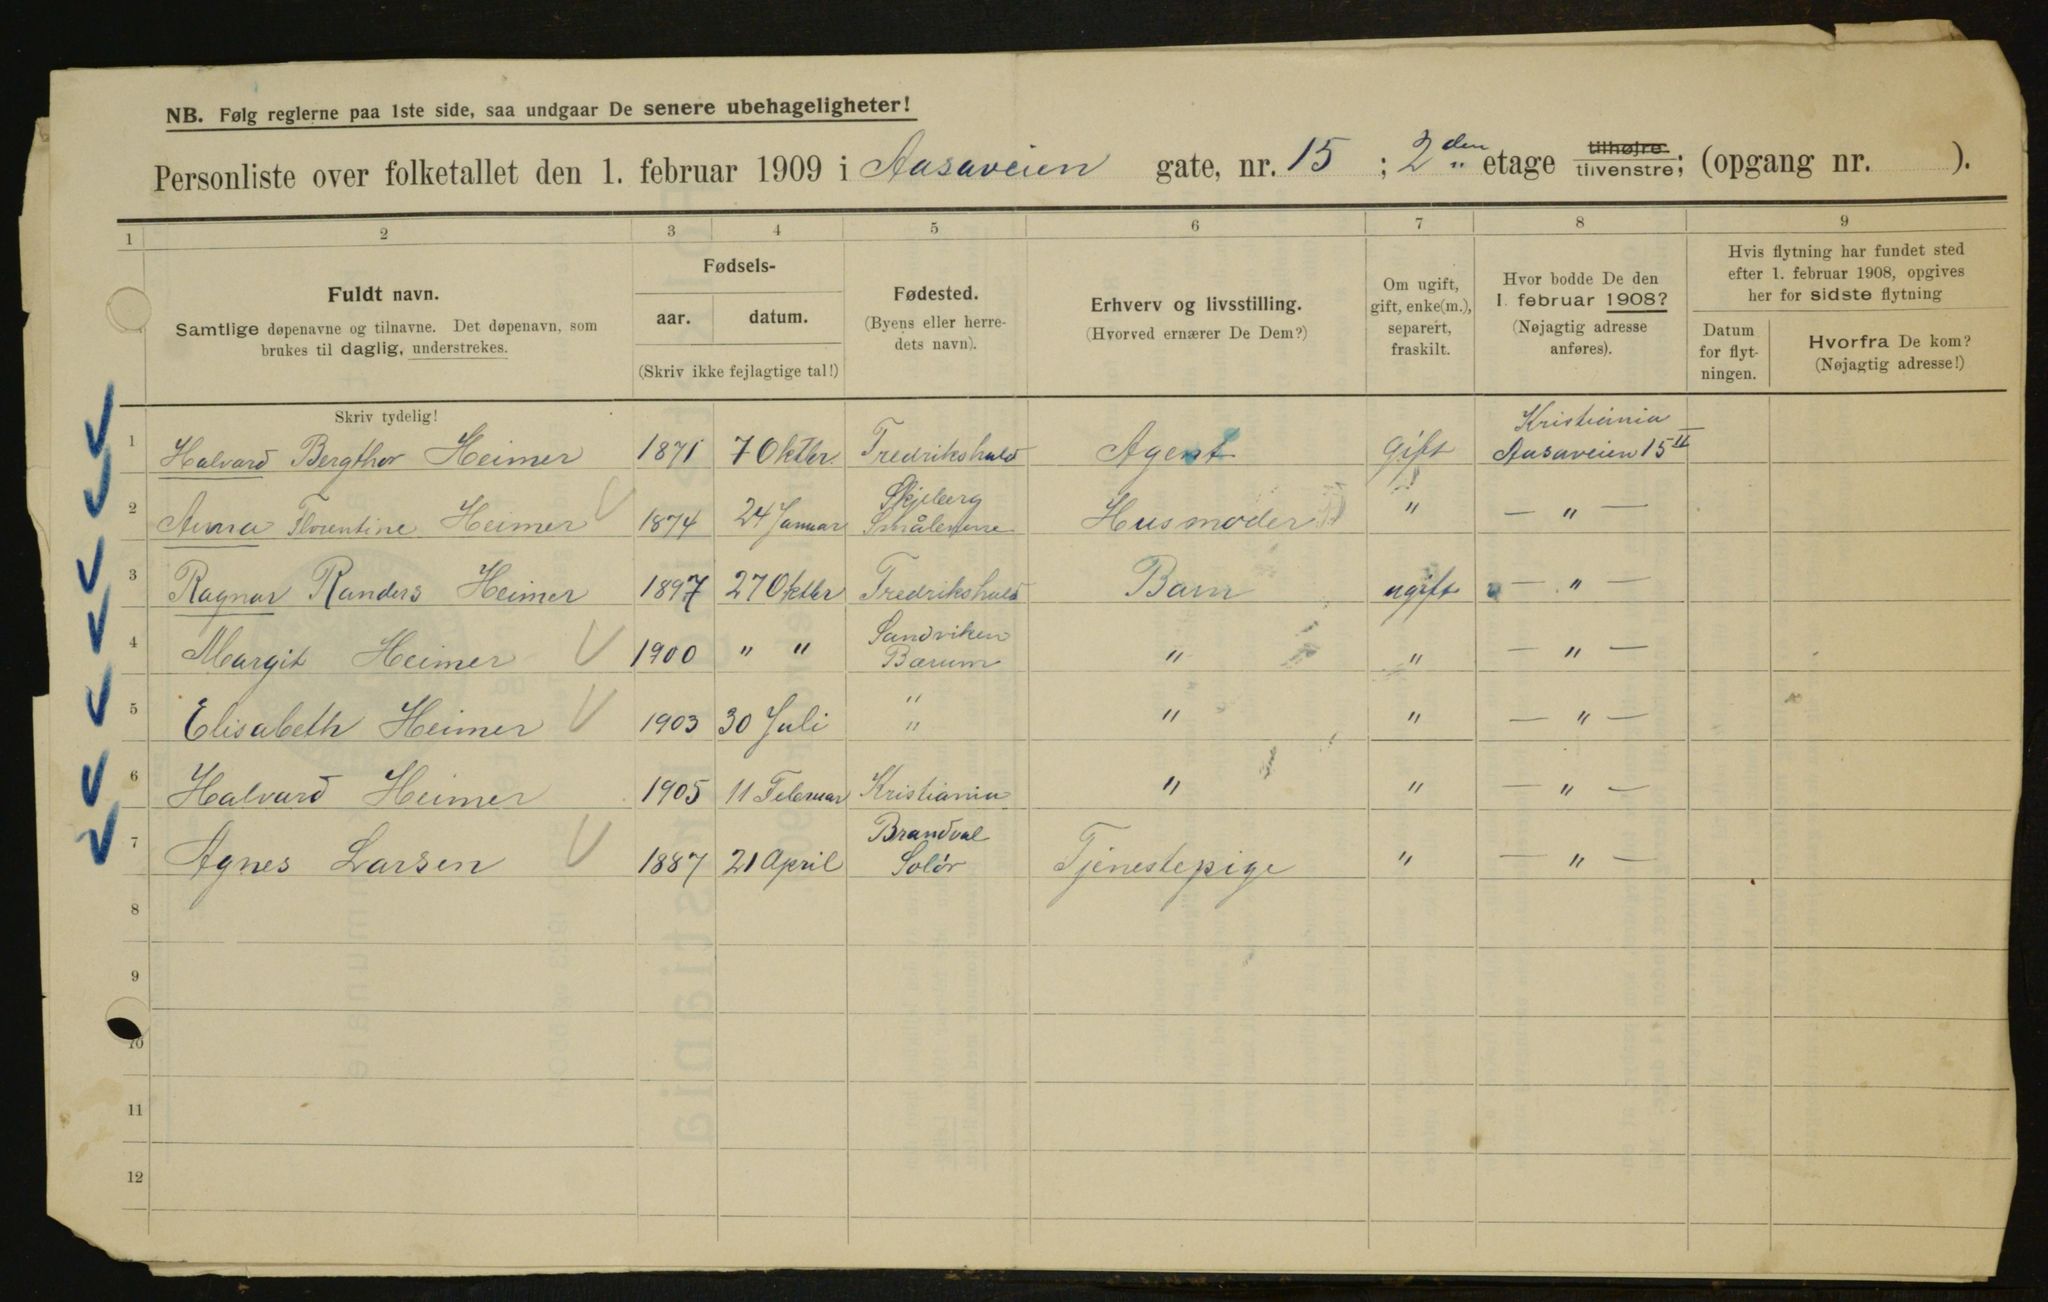 NB. Følg reglerne paa 1ste side, saa undgaar De senere ubehageligheter!
Personliste over folketallet den 1. februar 1909 i Aasaveien gate, nr. 15 ; 2 den etage tilhøjre tilvenstre; (opgang nr. ).
1 2 3 4 5 6 7 8 9
Fuldt navn.
Samtlige døpenavne og tilnavne. Det døpenavn, som
brukes til daglig, understrekes.
Skriv tydelig!
Fødsels-
aar. datum.
(Skriv ikke fejlagtige tal!)
Fødested.
(Byens eller herre-
dets navn).
Erhverv og livsstilling.
(Hvorved ernærer De Dem?)
Om ugift,
gift, enke(m.),
separert,
fraskilt.
Hvor bodde De den
1. februar 1908?
(Nøjagtig adresse
anføres).
Hvis flytning har fundet sted
efter 1. februar 1908, opgives
her for sidste flytning
Datum
for flyt-
ningen.
Hvorfra De kom?
(Nøjagtig adresse!)
Kristiania
1 Halvard Bergthor Heimer 1871 7 Oktbr. Fredrikshald Agent Gift Aasaveien 15 II
Skjeberg
2 Anna Florentine Heimer 1874 24 Januar Smålenene Husmoder " — " —
3 Ragnar Randers Heimer 1897 27 Oktbr Fredrikshald Barn ugift — " —
Sandviken
4 Margit Heimer 1900 " " Bærum " " — " —
"
5 Elisabeth Heimer 1903 30 Juli " " " — " —
6 Halvard Heimer 1905 11 Februar Kristiania " " — " —
Brandval
7 Agnes Larsen 1887 21 April Solør Tjenestepige " — " —
8
9
10
11
12